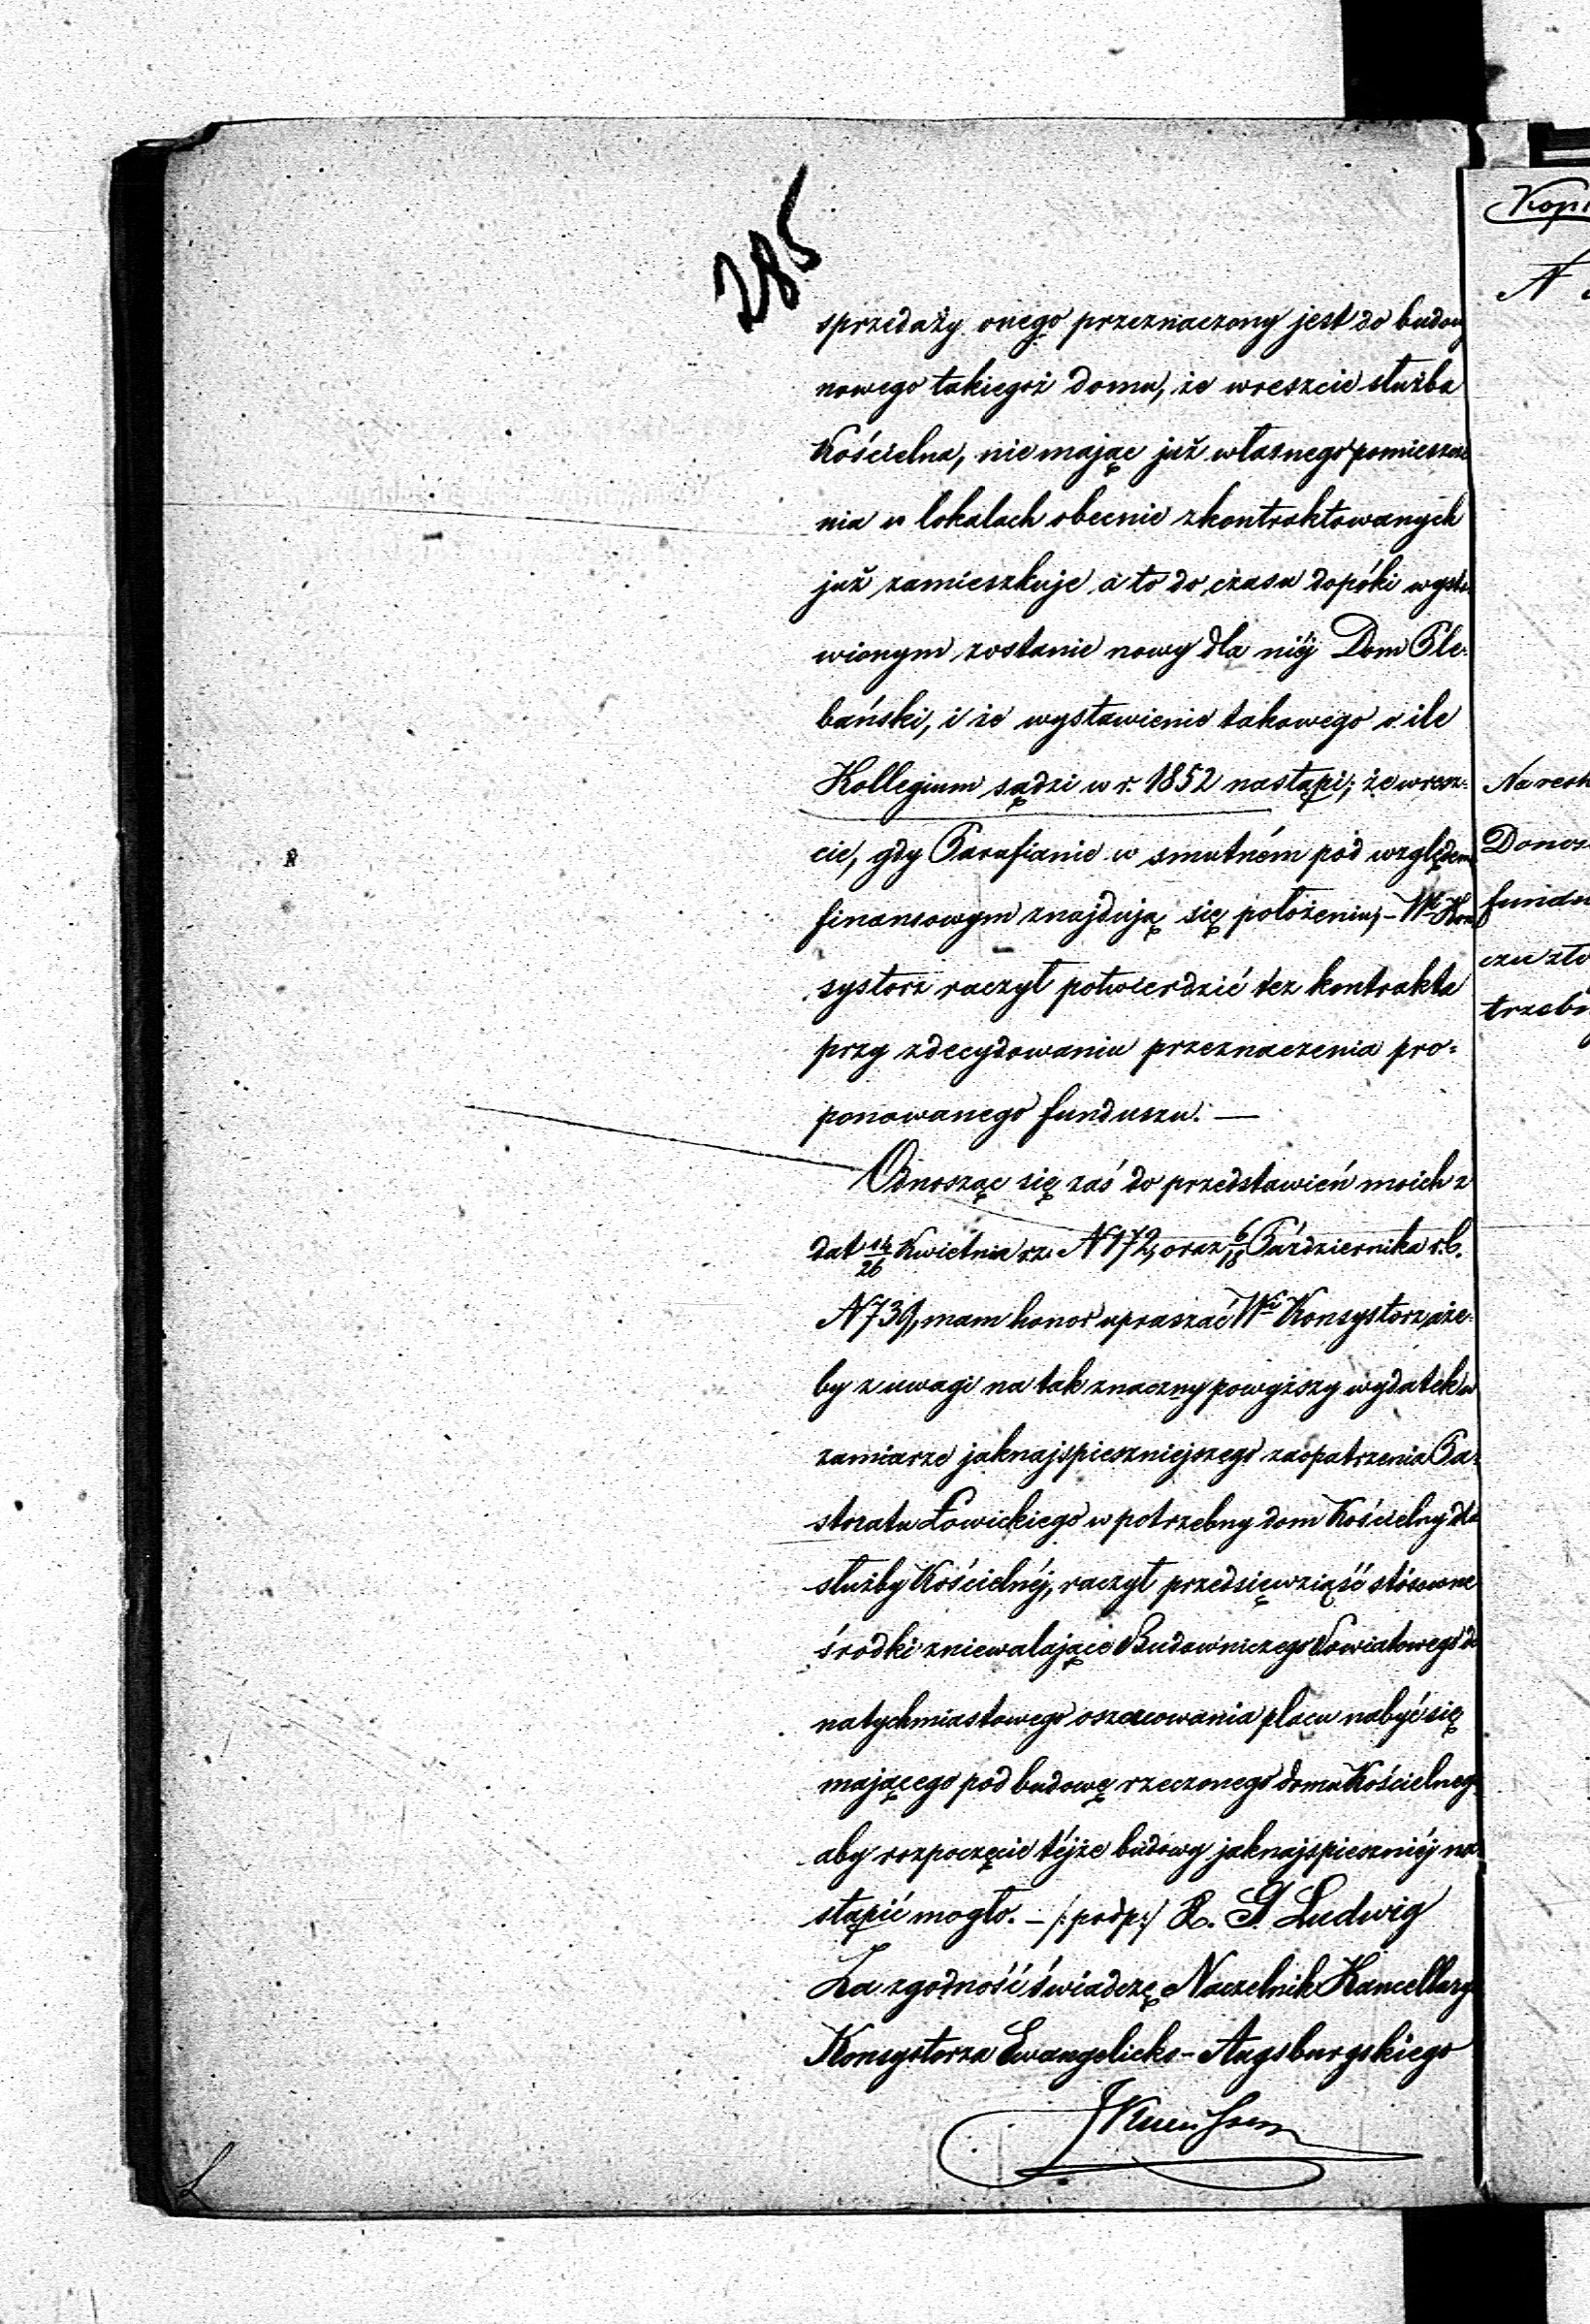 285
sprzedaży onego przeznaczony jest do budow
nowego takiegoż domu, że wreszcie służba
Kościelna, nie mając już własnego pomieszcze
nia w lokalach obecnie zkontraktowanych
już zamieszkuje a to do czasu dopóki wysta
wionym zostanie nowy dla niéj Dom Ple-
bański, i że wystawienie takowego o ile
Kollegium sądzi w r. 1852 nastąpi; że wresz-
cie, gdy Parafianie w smutném pod względem
finansowym znajdują się położeniu, – Wı Kon
systorz raczył potwierdzić też kontrakta
przy zdecydowaniu przeznaczenia pro-
ponowanego funduszu. —
Odnosząc się zaś do przedstawień moich z
dat 14/26 Kwietnia rz. N 172, oraz 6/18 Października r.b.
N 739, mam honor upraszać Wi Konsystorz, aże-
by z uwagi na tak znaczny powyższy wydatek w
zamiarze jaknajspieszniejszego zaopatrzenia Pa-
storatu Łowickiego w potrzebny dom Kościelny dla
służby Kościelnéj, raczył przedsięwziąść stósowne
środki zniewalające Budowniczego Powiatowego do
natychmiastowego oszacowania placu nabyć się
mającego pod budowę rzeczonego domu Kościelnego
aby rozpoczęcie téjże budowy jaknajspieszniéj na-
stąpić mogło. – /:podp:/ R. G. Ludwig
Za zgodność świadczę Naczelnik Kancellaryi
Konsystorza Ewangelicko-Augsburgskiego
Kopi
N
Donos